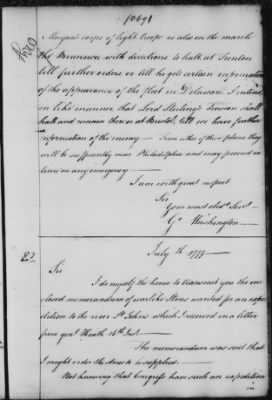 (069)
Morgan's corps of light troops is also in the march
thro' Brunswic with directions to halt at Trenton
till further orders or till he gets certain information
of the appearance of the fleet in Delaware. I intend
in like manner that Lord Stirling's Division shall
halt and remain there or at Bristol, till we have further
information of the enemy — From either of these places they
will be sufficiently near Philadelphia and may proceed on
time on any emergency —
I am with great respect
Sir
Your most obedt. Servt.
Go. Washington
July th. 1777
Sir
I do myself the honor to transmit you the en-
closed memorandum of warlike Stores wanted for an expe-
dition to the river St. John's which I received in a letter
from genl. Heath 16th. Inst.
The memorandum was sent that
I might order the stores to be supplied —
Not knowing that Congress have such an expedition
in